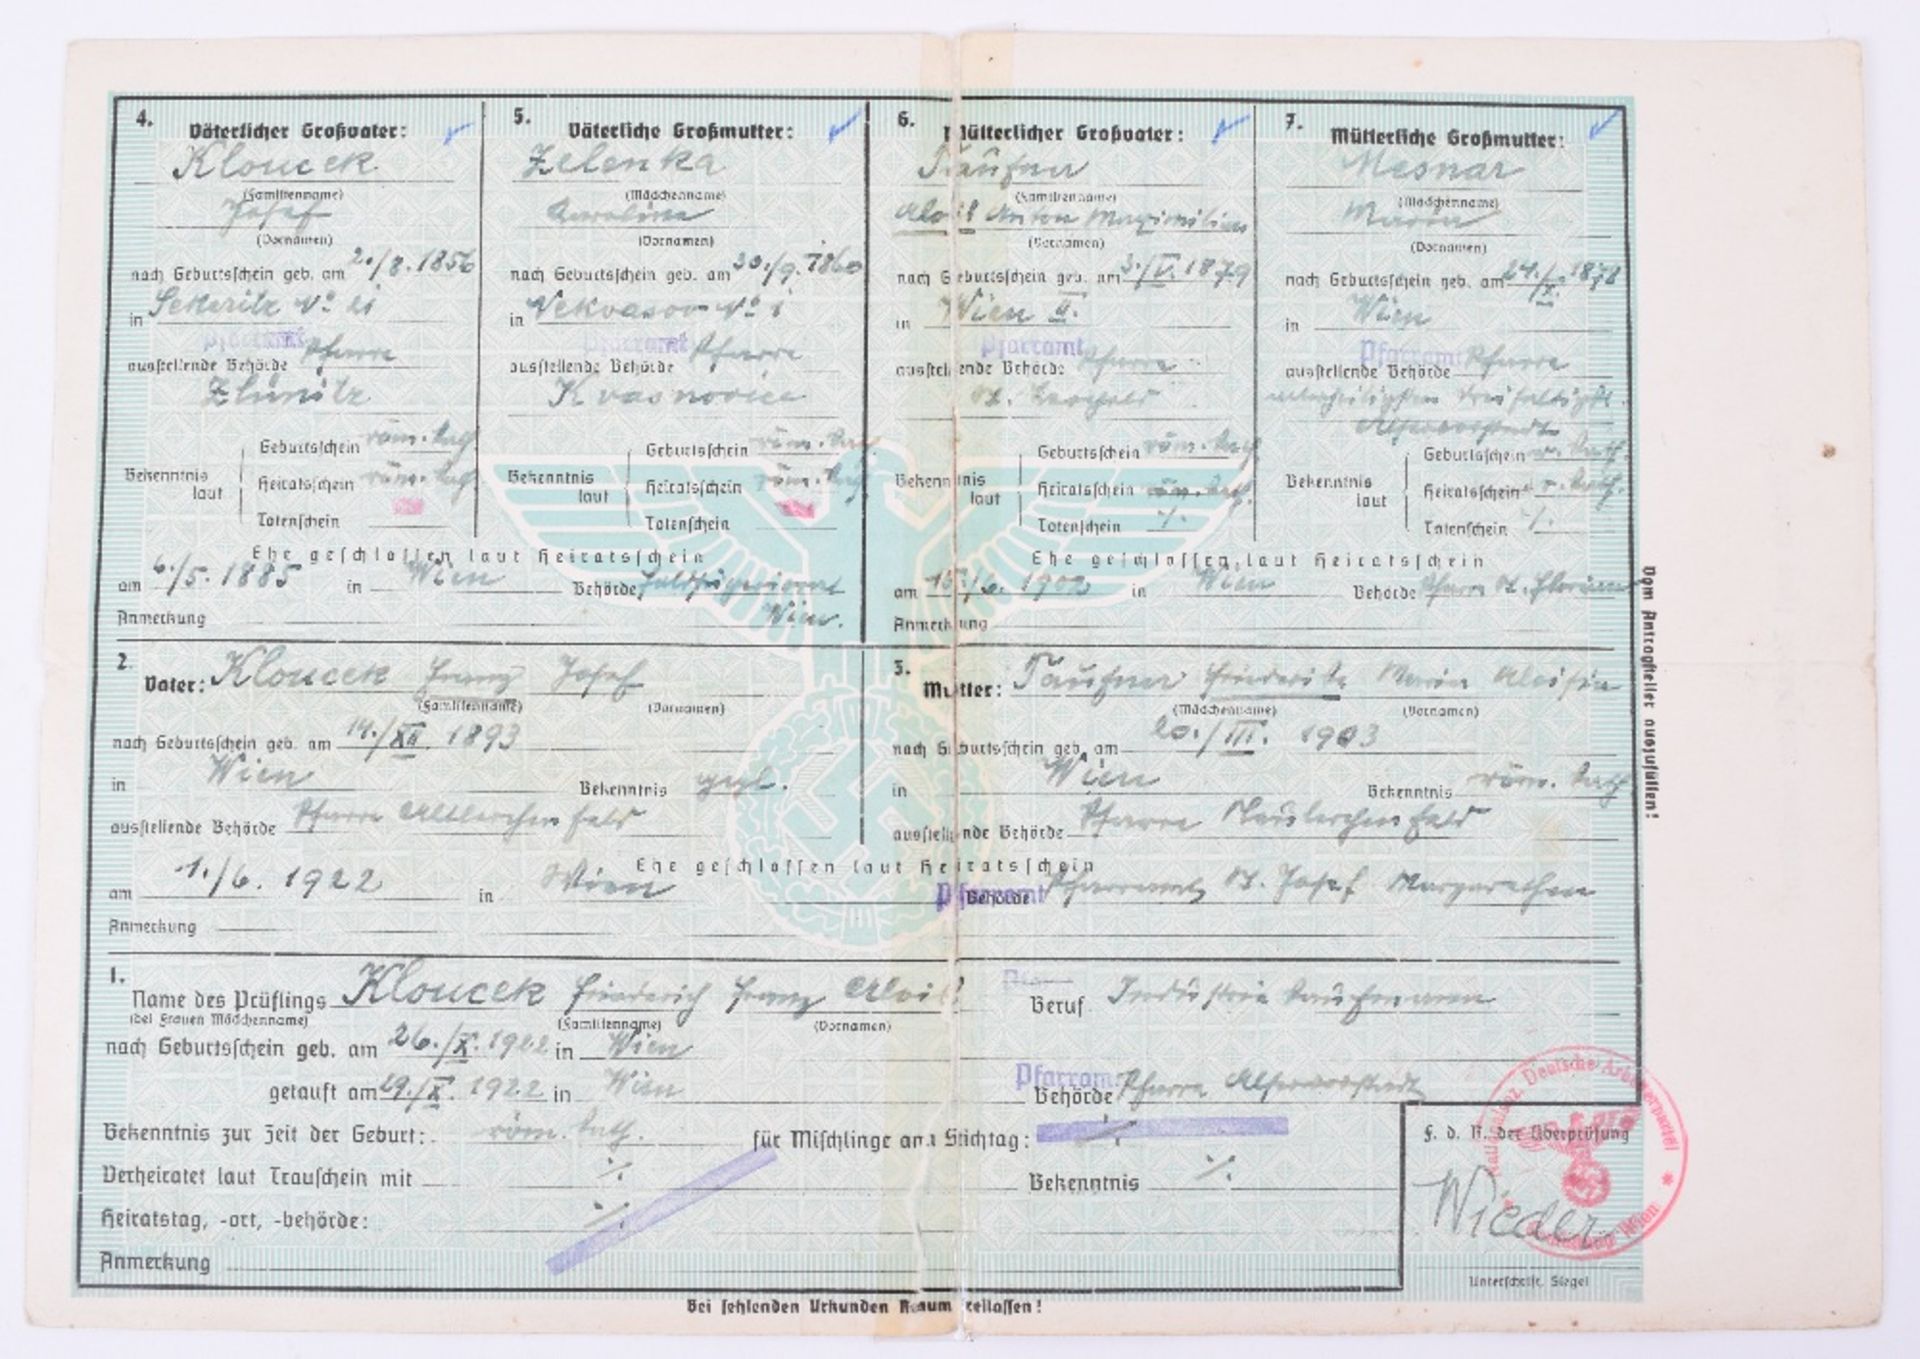 4.
Väterlicher Großvater:
Kloucek
(Familienname)
Josef
(Vornamen)
nach Geburtsschein geb. am 2./8. 1856
in
Pfarramt
ausstellende Behörde Pfarre
Zlunitz
Bekenntnis laut
Geburtsschein röm. kath
Heiratsschein röm. kath
Totenschein
5.
Väterliche Großmutter:
Zelenka
(Mädchenname)
Karoline
(Vornamen)
nach Geburtsschein geb. am 30./9. 1860
in
Pfarramt
ausstellende Behörde Pfarre
Kvasnovice
Bekenntnis laut
Geburtsschein röm. kath
Heiratsschein röm. kath
Totenschein
Ehe geschlossen laut Heiratsschein
am 6./5. 1885 in Wien Behörde
Wien.
Anmerkung
6.
Mütterlicher Großvater:
Taufner
(Familienname)
Alois Anton Maximilian
(Vornamen)
nach Geburtsschein geb. am 3./V. 1879
in Wien II.
Pfarramt
ausstellende Behörde Pfarre
St. Leopold
Bekenntnis laut
Geburtsschein röm. kath
Heiratsschein röm. kath.
Totenschein ·/.
7.
Mütterliche Großmutter:
Mesnar
(Mädchenname)
Maria
(Vornamen)
nach Geburtsschein geb. am 24./X. 1878
in Wien
Pfarramt Pfarre
ausstellende Behörde
Alservorstadt
Bekenntnis laut
Geburtsschein r. kath.
Heiratsschein r. kath.
Totenschein ·/.
Ehe geschlossen laut Heiratsschein
am 15./6. 1902 in Wien Behörde Pfarre St. Florian
Anmerkung
2.
Vater: Kloucek Franz Josef
(Familienname) (Vornamen)
nach Geburtsschein geb. am 14./XII. 1893
in Wien Bekenntnis
ausstellende Behörde Pfarre Altlerchenfeld
3.
Mutter: Taufner Friederike Maria Aloisia
(Mädchenname) (Vornamen)
nach Geburtsschein geb. am 20./III. 1903
in Wien Bekenntnis röm. kath
ausstellende Behörde Pfarre Neulerchenfeld
Ehe geschlossen laut Heiratsschein
am 1./6. 1922 in Wien Pfarramt Behörde Pfarramt St. Josef Margarethen
Anmerkung
1.
Name des Prüflings Kloucek Friederich Franz Alois Beruf Industrie Kaufmann
(bei Frauen Mädchenname) (Familienname) (Vornamen)
nach Geburtsschein geb. am 26./X. 1922 in Wien
getauft am 29./X. 1922 in Wien Pfarramt Behörde Pfarre Alservorstadt
Bekenntnis zur Zeit der Geburt: röm. kath. für Mischlinge am Stichtag: ·/.
Verheiratet laut Trauschein mit ·/. Bekenntnis ·/.
Heiratstag, -ort, -behörde: ·/.
Anmerkung
F. d. R. der Überprüfung
Wieder
Unterschrift, Siegel
Bei fehlenden Urkunden Raum freilassen!
Vom Antragsteller auszufüllen!